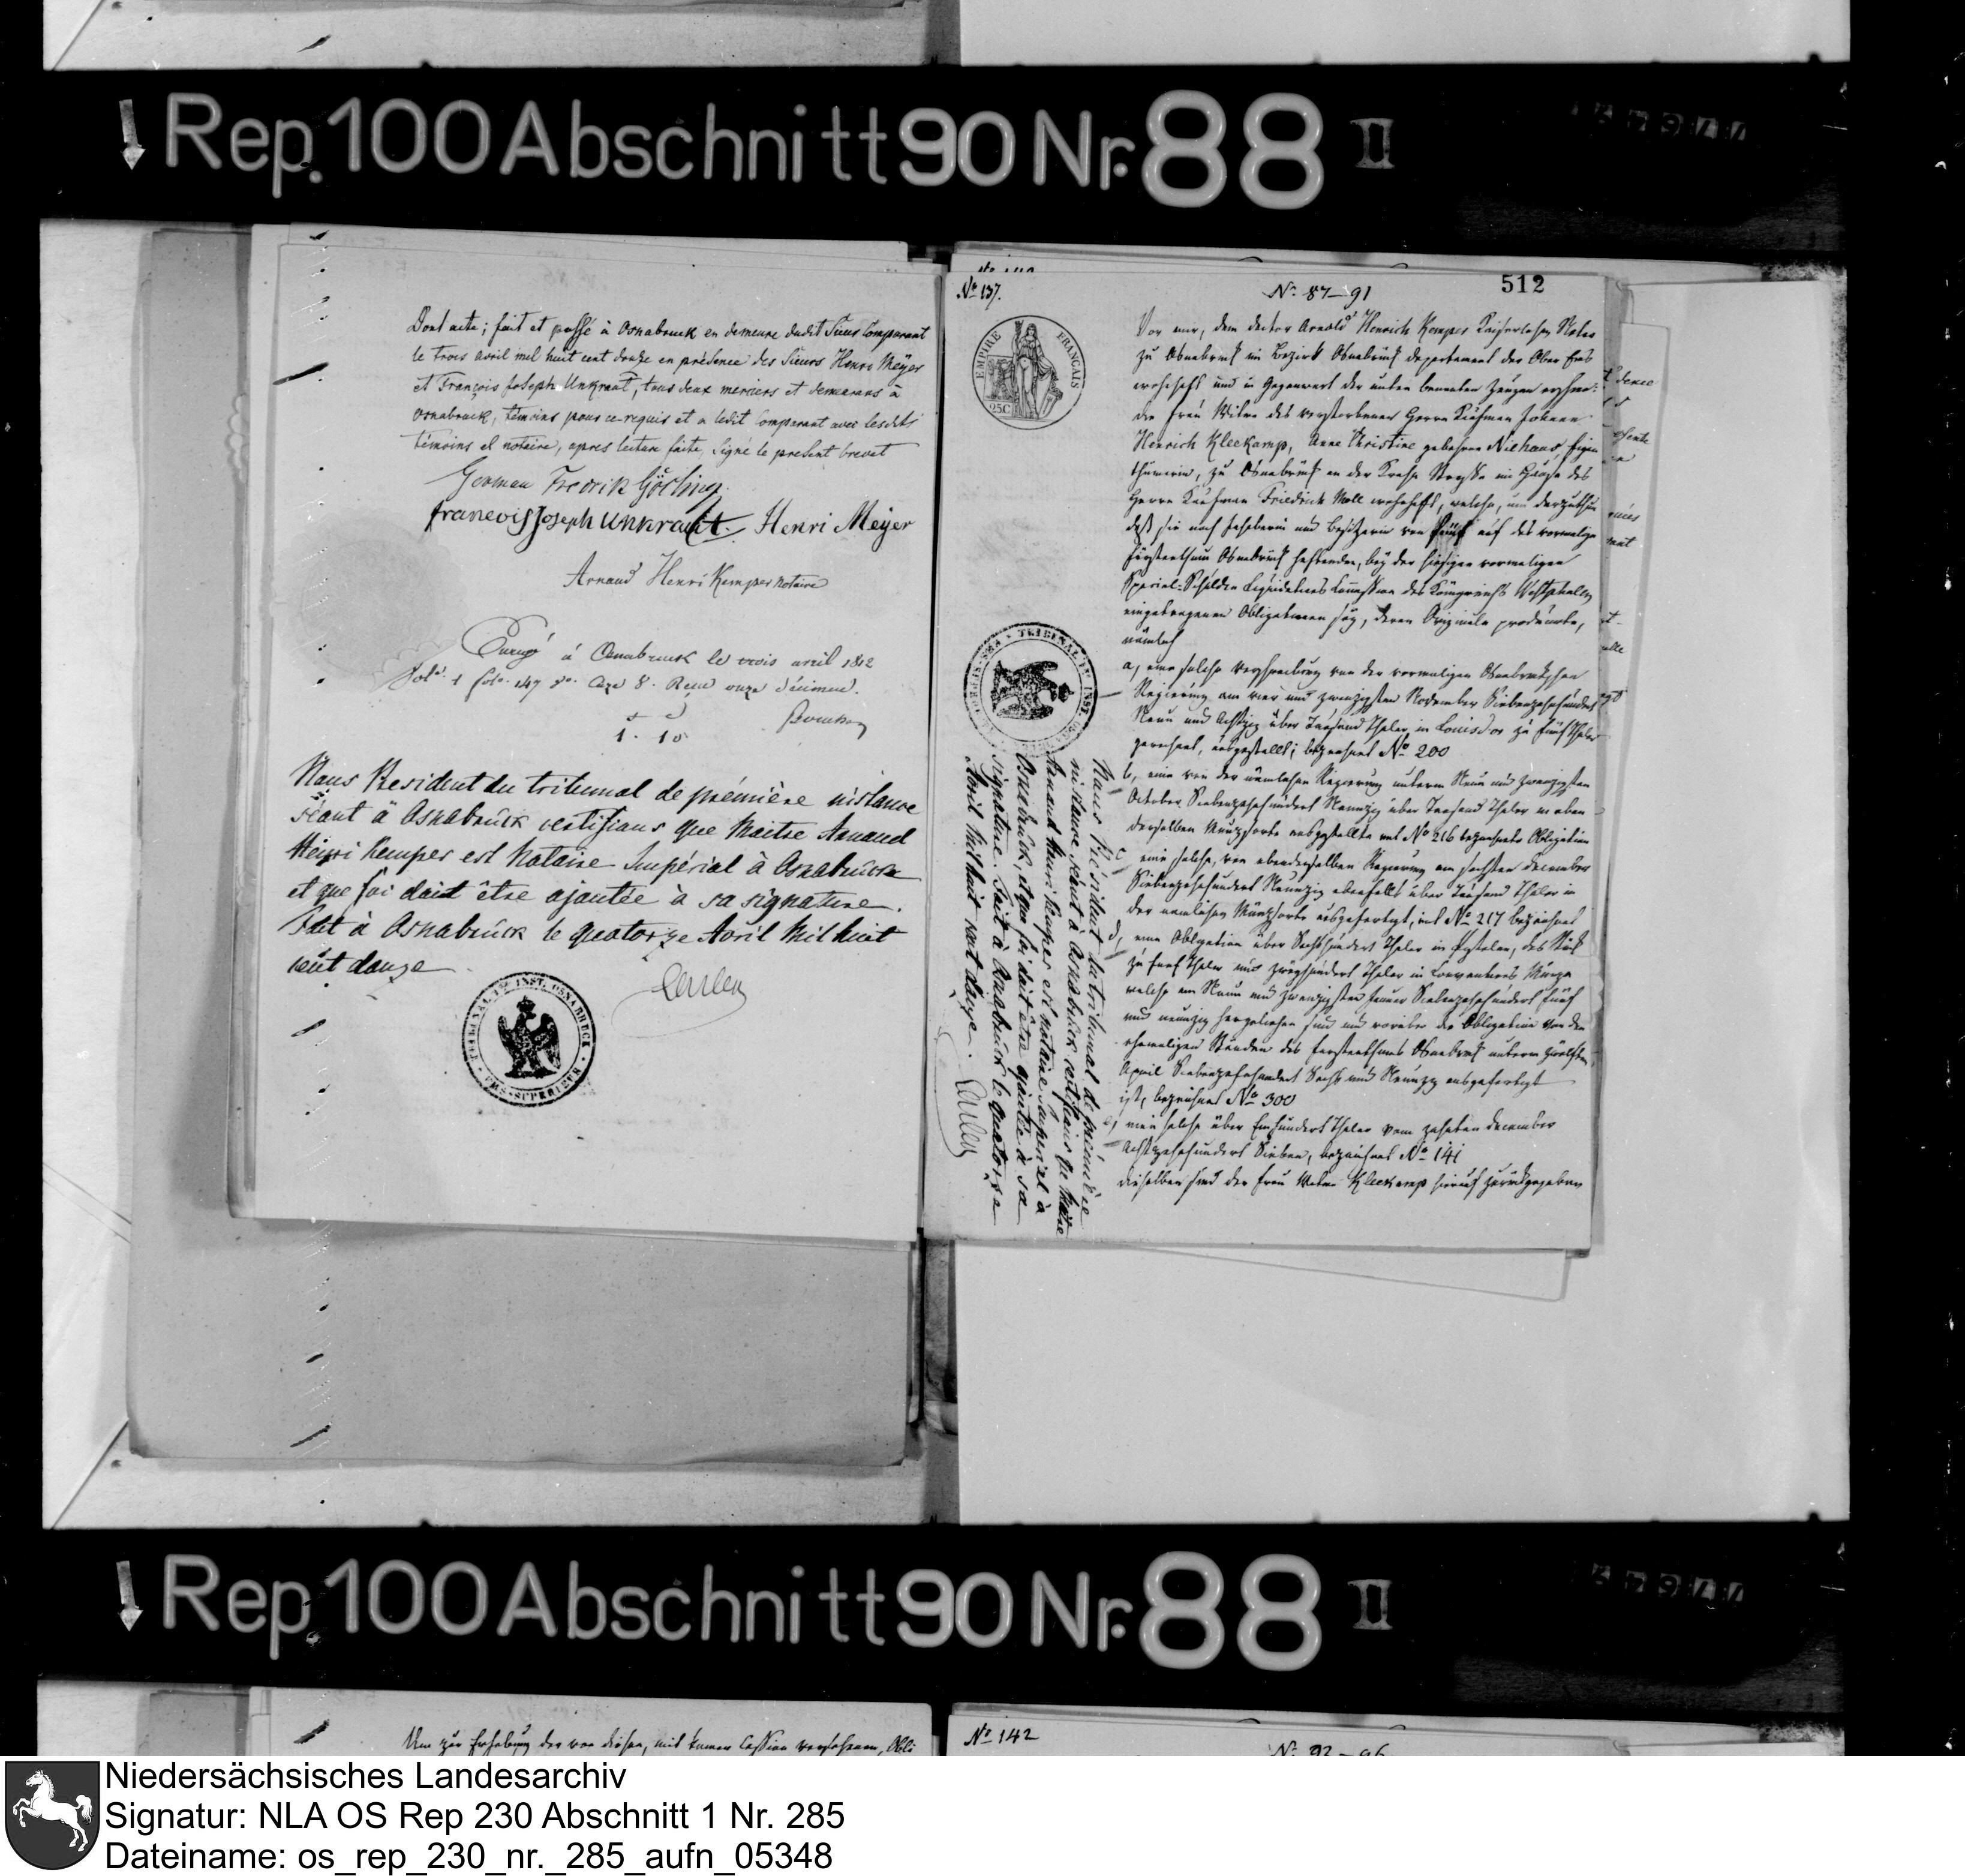 Rep. 100 Abschnitt 90 Nr. 88 II
Dont acte; fait et passé à Osnabruck en demeure dudit Sieur Comparant
le trois avril mil huit cent douze en présence des Sieurs Henri Meyer
et François Joseph Unkraut, tous deux merciers et demeurans à
Osnabruck, témoins pour ce requis et a ledit Comparant avec lesdits
témoins et notaire, apres lecture faite, signé le present brevet
German Fredrik Gösling
francois Joseph Unkraut. Henri Meyer
Arnaud Henri Kemper notaire
à Osnabruck le trois avril 1812
fol. 147 Case 8. Reçu onze décimes.
1. 10
Nous President du tribunal de première instance
séant à Osnabrück certifions que Maitre Arnaud
Henri Kemper est Notaire Impérial à Osnabrück
et que foi doit être ajoutée à sa signature.
Fait à Osnabrück le quatorze Avril Mil huit
cent douze
TRIBUNAL 1RE INST. OSNABRUCK
EMS-SUPERIEUR
No 137.
No 87–91
512
EMPIRE FRANÇAIS
25C
Vor mir, dem doctor Arnold Henrich Kemper Kaiserlichen Notar
zu Osnabrück im Bezirk Osnabrück departement der Ober Ems
wohnhaft und in Gegenwart der unten benannten Zeugen erschien
die Frau Witwe des verstorbenen Herrn Kaufman Johann
Henrich Kleekamp, Anne Christine gebohrne Niehaus, Eigen
thümerin, zu Osnabrück an der Straße im Hause des
Herrn Kaufman Friedrich Moll wohnhaft, welche, um darzuthun
daß sie noch Inhaberin und Besitzerin von fünf auf das vormalige
Fürstenthum Osnabrück haftenden, bey der hiesigen vormaligen
Special-Schulden Liquidations Commission des Königreichs Westphalen
eingetragenen Obligationen sey, deren Originale producirte,
nämlich
a, eine solche Verschreibung von der vormaligen Osnabrückschen
Regierung am vier und zwanzigsten November Siebenzehnhundert
Neun und Achtzig über Tausend Thaler in Louisd'or zu fünf Thaler
gerechnet, ausgestellt; bezeichnet No 200
b, eine von der nämlichen Regierung unterm Neun und zwanzigsten
October Siebenzehnhundert Neunzig über Tausend Thaler in eben
derselben Münzsorte ausgestellte mit No 216 bezeichnete Obligation
c, eine solche, von ebenderselben Regierung am sechsten December
Siebenzehnhundert Neunzig ebenfalls über Tausend Thaler in
der nemlichen Münzsorte ausgefertigt, mit No 217 bezeichnet
d, eine Obligation über Sechshundert Thaler in Pistolen, das Stück
zu fünf Thaler und zweyhundert Thaler in Conventions Münze
welche am Neun und zwanzigsten Januar Siebenzehnhundert fünf
und neunzig hergeliehen sind und worüber die Obligation von den
ehemaligen Ständen des Fürstenthums Osnabrück unterm zwölften
April Siebenzehnhundert Sechs und Neunzig ausgefertigt
ist, bezeichnet No 300
e, eine solche über Einhundert Thaler vom zehnten December
Achtzehnhundert Sieben, bezeichnet No 141
dieselben sind der Frau Witwe Kleekamp hierauf zurückgegeben
Nous Président du tribunal de première
instance séant à Osnabrück certifions que Maitre
Arnaud Henri Kemper est notaire Impérial à
Osnabrück, et que foi doit être ajoutée à sa
signature. Fait à Osnabrück le quatorze
Avril Mil huit cent douze.
Rep. 100 Abschnitt 90 Nr. 88 II
No 142
No 92–96
Niedersächsisches Landesarchiv
Signatur: NLA OS Rep 230 Abschnitt 1 Nr. 285
Dateiname: os_rep_230_nr._285_aufn_05348